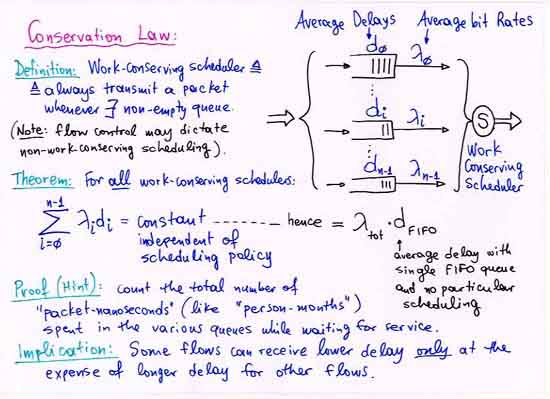 Conservation Law:
Average Delays
Average bit Rates
d₀
λ₀
dᵢ
λᵢ
dₙ₋₁
λₙ₋₁
S
Work
Conserving
Scheduler
Definition: Work-conserving scheduler ≜
≜ always transmit a packet
whenever ∃ non-empty queue.
(Note: flow control may dictate
non-work-conserving scheduling).
Theorem: For all work-conserving schedulers:
n-1
∑ λᵢdᵢ = constant ------- hence = λtot · dFIFO
i=0
independent of
scheduling policy
average delay with
single FIFO queue
and no particular
scheduling
Proof (Hint): count the total number of
"packet-nanoseconds" (like "person-months")
spent in the various queues while waiting for service.
Implication: Some flows can receive lower delay only at the
expense of longer delay for other flows.